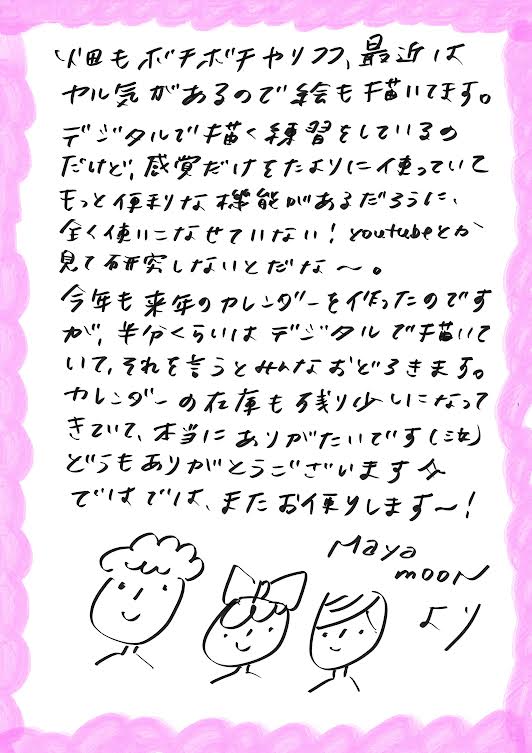 畑もボチボチやりつつ、最近は
ヤル気があるので絵も描いてます。
デジタルで描く練習をしているの
だけど、感覚だけをたよりに使っていて
もっと便利な機能があるだろうに、
全く使いこなせていない！youtubeとか
見て研究しないとだな〜。
今年も来年のカレンダーを作ったのです
が、半分くらいはデジタルで描いて
いて、それを言うとみんなおどろきます。
カレンダーの在庫も残り少しになって
きていて、本当にありがたいです(泣)
どうもありがとうございます☆
ではでは、またお便りします〜！
Maya
mooN
より